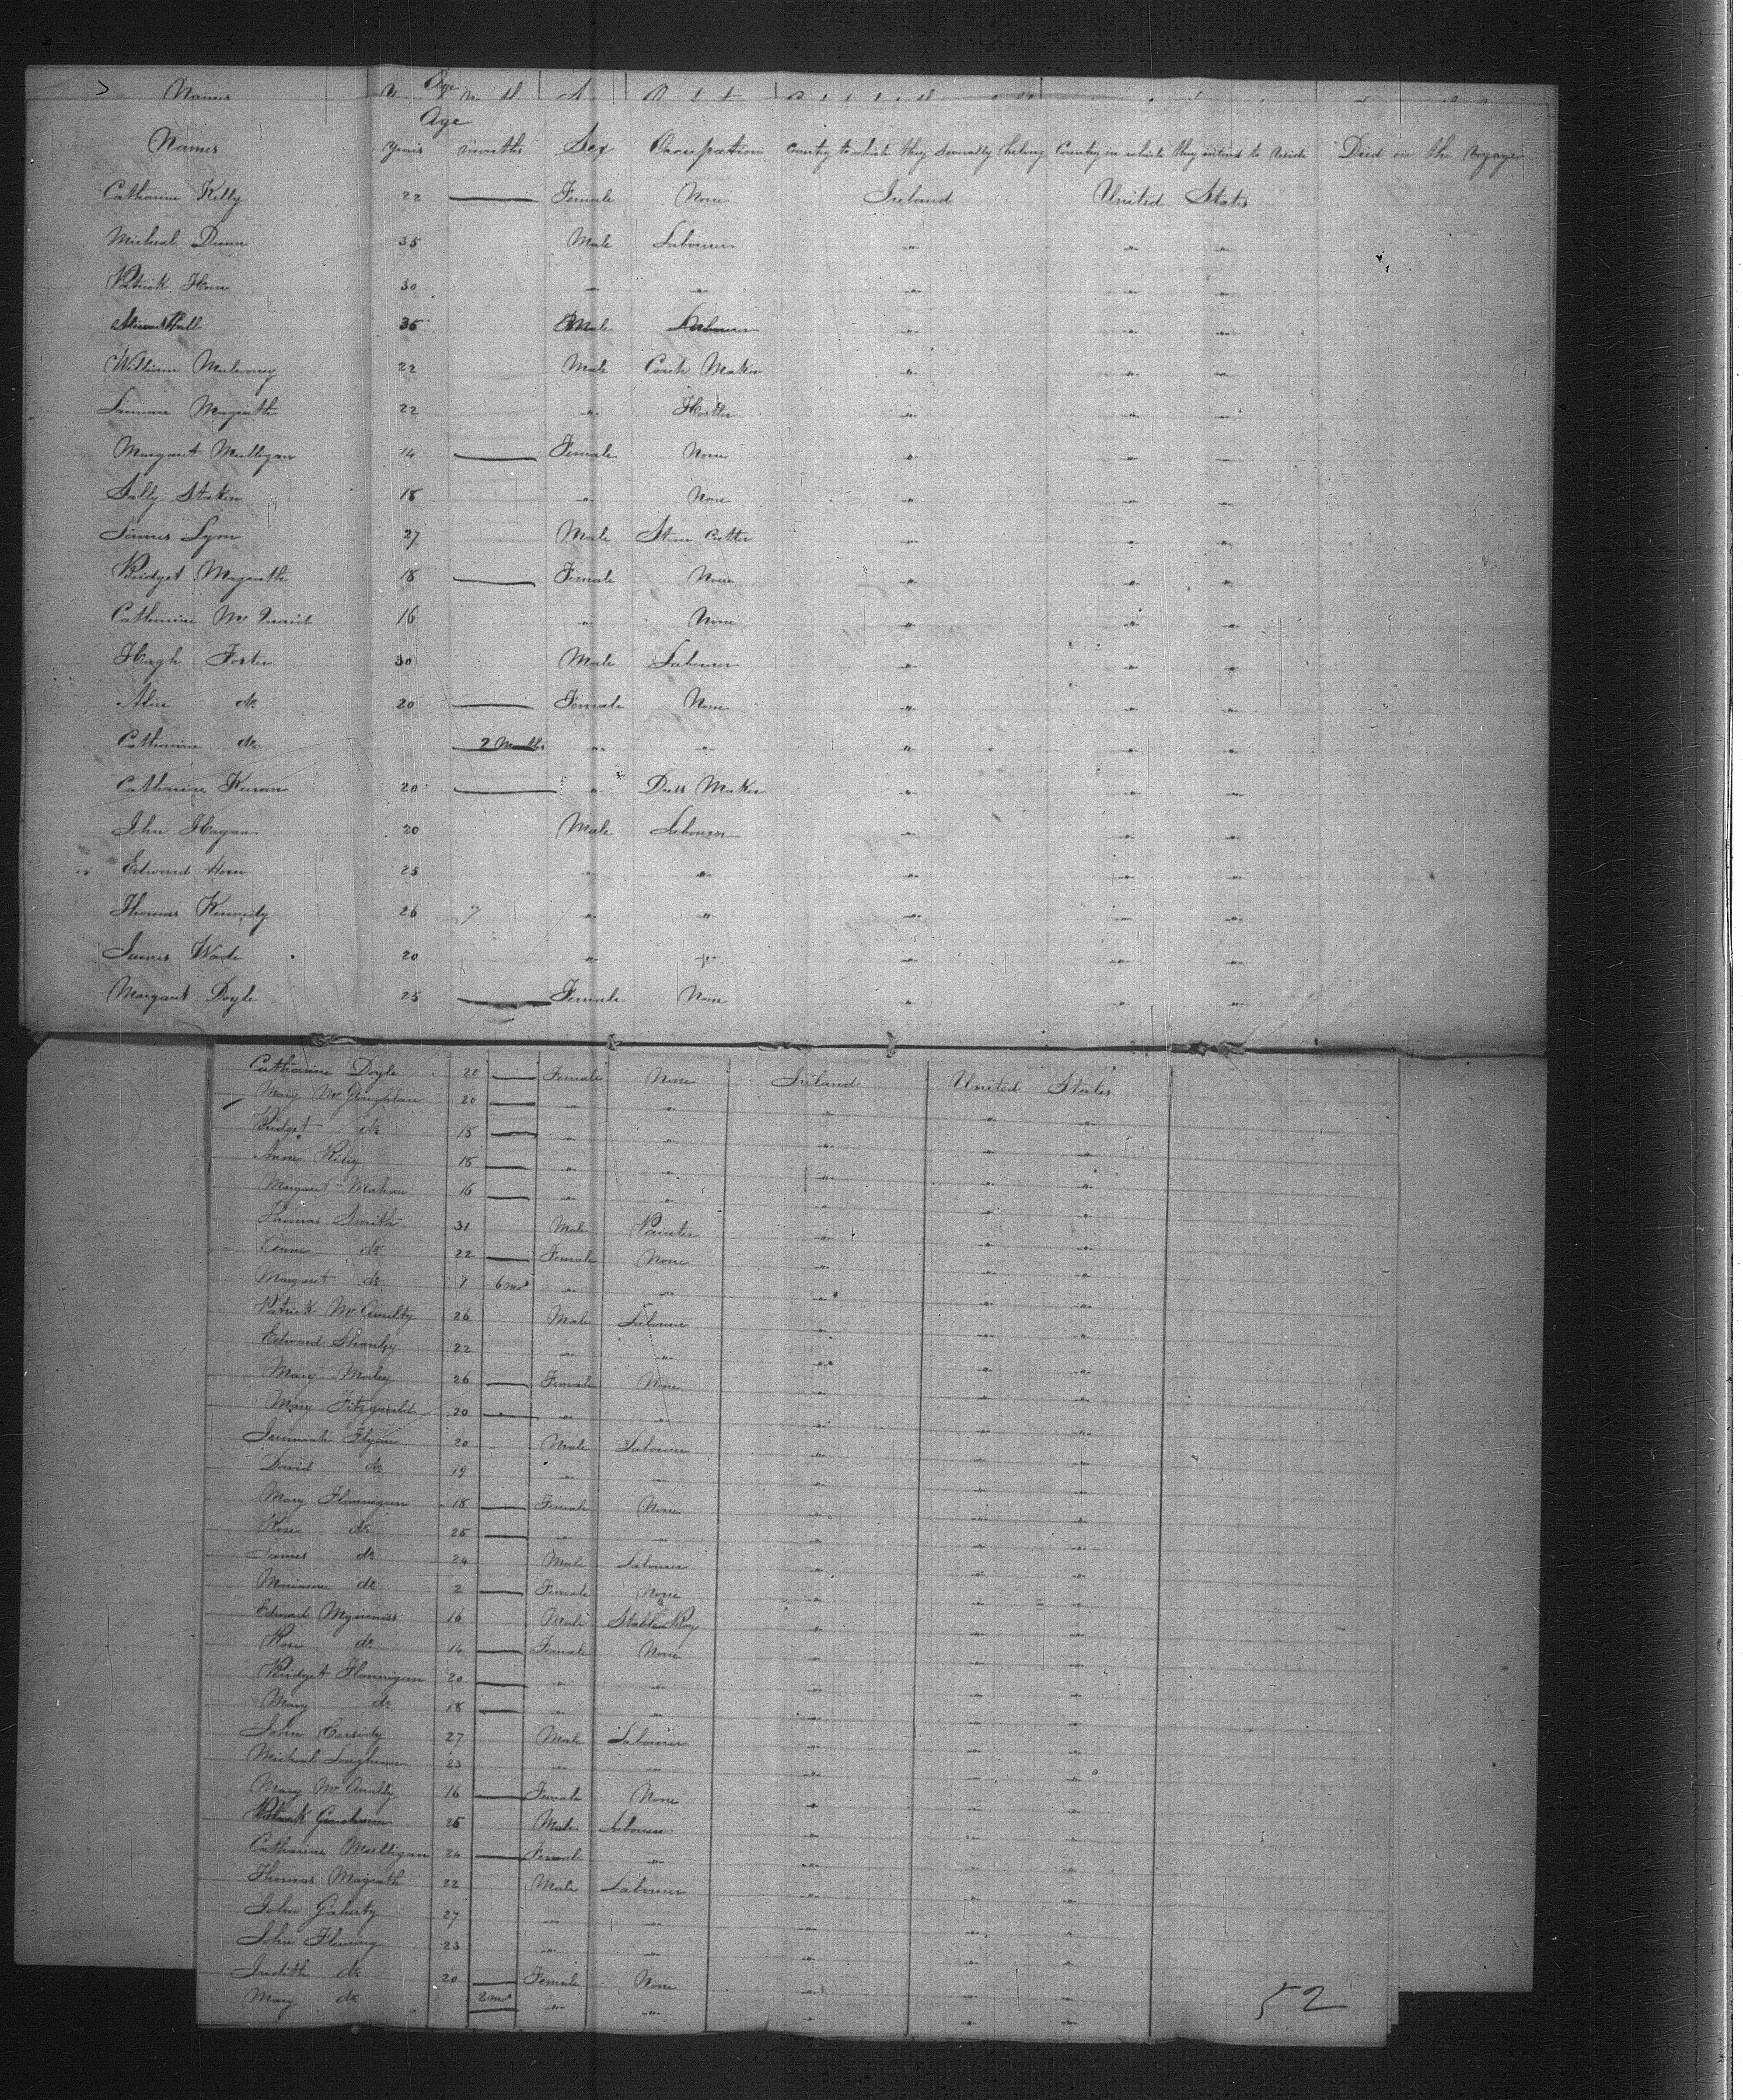 Names Age
Age
Names years months Sex Occupation Country to which they severally belong Country in which they intend to reside Died on the Voyage
Catharine Kelly 22 Female None Ireland United States
Micheal Dunn 35 Male Labourer " " "
Patrick Horn 30 " " " " "
Hall 35 Male Labourer " " "
William Mulroney 22 Male Coach Maker " " "
Magrath 22 " Hostler " " "
Margaret Mulligan 14 Female None " " "
Sally Staken 18 " None " " "
James Lyon 27 Male Stone Cutter " " "
Bridget Magrath 18 Female None " " "
Catharine Mc 16 None " " "
Hugh Foster 30 Male Labourer " " "
Alice do 20 Female None " " "
Catharine do 2 Months " " " " "
Catharine Kieran 20 " Dress Maker " " "
John Hagan 20 Male Labourer " " "
Edward Horn 25 " " " " "
Thomas Kennedy 26 " " " " "
James Wade 20 " " " " "
Margaret Doyle 25 Female None " " "
Catharine Doyle 20 Female None Ireland United States
Mary Mc Gloughlan 20 " " " " "
Bridget do 18 " " " " "
Anne Riley 18 " " " " "
Margaret Mahan 16 " " " " "
Thomas Smith 31 Male Painter " " "
Anne do 22 Female None " " "
Margaret do 1 6 mos " " " " "
Patrick Mc Anulty 26 Male Labourer " " "
Edward Shanley 22 " " " " "
Mary Maley 26 Female None " " "
Mary Fitzgerald 20 " " " " "
Jeremiah Flynn 20 Male Labourer " " "
David do 19 " " " " "
Mary Flannigan 18 Female None " " "
Rose do 25 " " " " "
James do 24 Male Labourer " " "
do 2 Female None " " "
Edward Mginniss 16 Male Stable Boy " " "
Rose do 14 Female None " " "
Bridget Flannigan 20 " " " " "
Mary do 18 " " " " "
John Cassidy 27 Male Labourer " " "
Micheal 23 " " " " "
Mary Mc Anulty 16 Female None " " "
Patrick 25 Male Labourer " " "
Catharine Mulligan 24 Female " " " "
Thomas Magrath 22 Male Labourer " " "
John Gaherty 27 " " " " "
John Fleming 23 " " " " "
Judith do 20 Female None " " "
Mary do 2 mos " " " " "
52